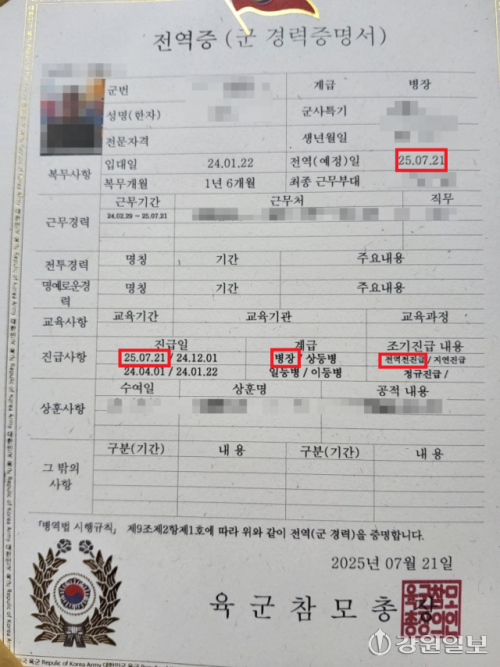 전역증 (군 경력증명서)
군번 계급 병장
성명(한자) 군사특기
전문자격 생년월일
복무사항 입대일 24.01.22 전역(예정)일 25.07.21
복무개월 1년 6개월 최종 근무부대
근무경력 근무기간 근무처 직무
24.02.29 ~ 25.07.21
전투경력 명칭 기간 주요내용
명예로운경력 명칭 기간 주요내용
교육사항 교육기간 교육기관 교육과정
진급사항 진급일 계급 조기진급 내용
25.07.21 / 24.12.01 병장 / 상등병 전역전진급 / 지연진급
24.04.01 / 24.01.22 일등병 / 이등병 정규진급 /
상훈사항 수여일 상훈명 공적 내용
그 밖의 사항 구분(기간) 내 용 구분(기간) 내 용
「병역법 시행규칙」 제9조제2항제1호에 따라 위와 같이 전역(군 경력)을 증명합니다.
2025년 07월 21일
육 군 참 모 총 장
강원일보